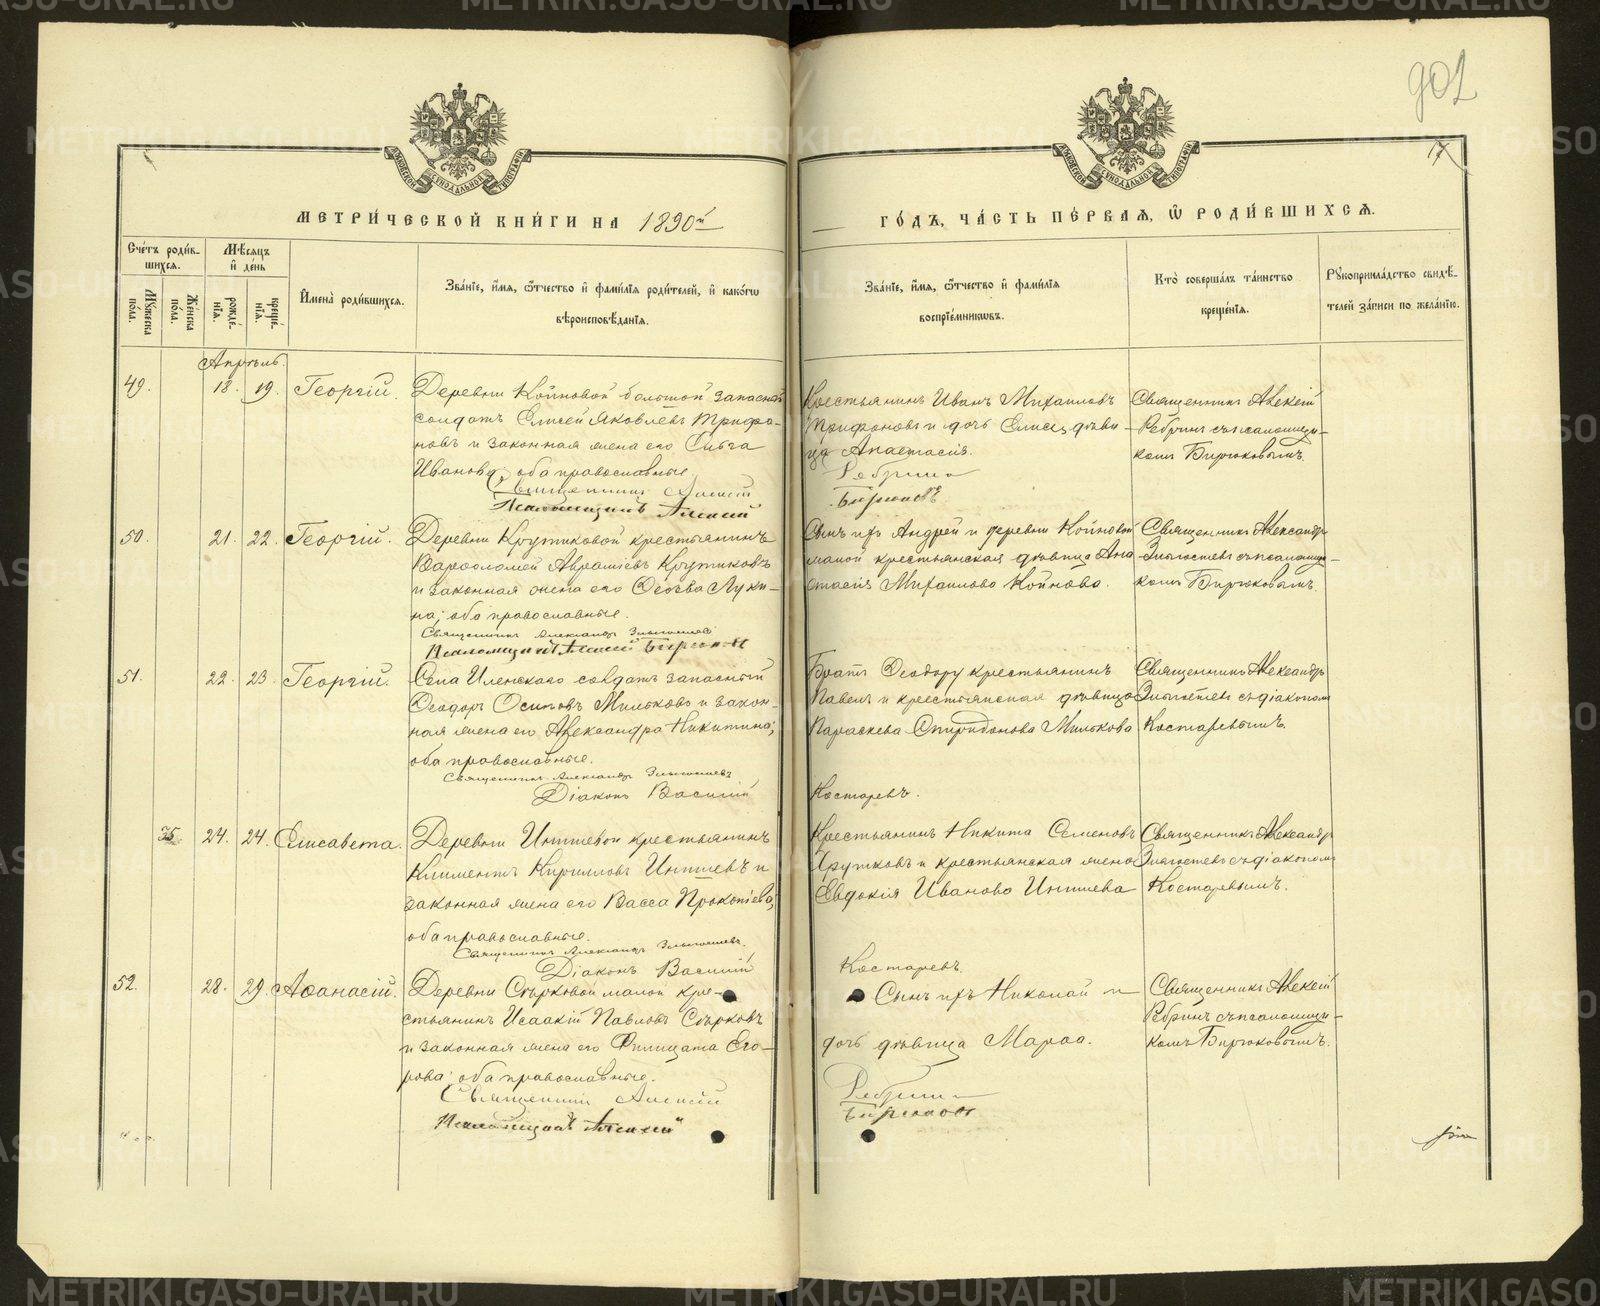 METRIKI.GASO-URAL.RU
901
17
СѴНОДАЛЬНОЙ ТИПОГРАФІИ
МЕТРИ́ЧЕСКОЙ КНИ́ГИ НА 1890й
ГО́ДЪ, ЧА́СТЬ ПЕ́РВАѦ, Ѡ҆ РОДИ́ВШИХСѦ.
Сче́тъ роди́в-
шихсѧ.
Мꙋжеска пола.
Же́нска по́ла.
Мѣ́сѧцъ
и҆ де́нь
рожде́-
нїѧ.
креще́-
нїѧ.
И҆мена̀ роди́вшихсѧ.
Зва́нїе, и҆́мѧ, ѻ҆́тчество и҆ фами́лїѧ роди́телей, и҆ како́гѡ
вѣроисповѣ́данїѧ.
Зва́нїе, и҆́мѧ, ѻ҆́тчество и҆ фами́лїѧ
воспрїе́мникѡвъ.
Кто̀ соверша́лъ та́инство
креще́нїѧ.
Рꙋкоприкла́дство свидѣ́-
телей за́писи по жела́нїю.
Апрѣль.
49. 18. 19. Георгій.
Деревни Койновой большой запасный
солдатъ Елисей Яковлевъ Трифо-
новъ и законная жена его Ольга
Иванова; оба православные.
Священникъ Алексій
Псаломщикъ Алексій
Крестьянинъ Иванъ Михаиловъ
Трифоновъ и дочь Елисея дѣви-
ца Анастасія.
Ребринъ
Бирюковъ
Священникъ Алексій
Ребринъ съ псаломщи-
комъ Бирюковымъ.
50. 21. 22. Георгій.
Деревни Крутиковой крестьянинъ
Варѳоломей Авраміевъ Крутиковъ
и законная жена его Ѳеозва Луки-
на; оба православные.
Священникъ Александръ
Псаломщикъ Алексій Бирюковъ
Сынъ ихъ Андрей и деревни Койновой
малой крестьянская дѣвица Ана-
стасія Михаилова Койнова.
Священникъ Александръ
съ псаломщи-
комъ Бирюковымъ.
51. 22. 23. Георгій.
Села Иленскаго солдатъ запасный
Ѳеодоръ Осиповъ Мильковъ и закон-
ная жена его Александра Никитина;
оба православные.
Священникъ Александръ
Діаконъ Василій
Братъ Ѳеодору крестьянинъ
Павелъ и крестьянская дѣвица
Параскева Спиридонова Милькова
Костаревъ.
Священникъ Александръ
съ діакономъ
Костаревымъ.
35. 24. 24. Елисавета.
Деревни Интиевой крестьянинъ
Климентъ Кирилловъ Интиевъ и
законная жена его Васса Прокопіева;
оба православные.
Священникъ Александръ
Діаконъ Василій
Крестьянинъ Никита Семеновъ
и крестьянская жена
Евдокія Иванова Интиева
Костаревъ.
Священникъ Александръ
съ діакономъ
Костаревымъ.
52. 28. 29. Аѳанасій.
Деревни Сѣрковой малой кре-
стьянинъ Исаакій Павловъ Сѣрковъ
и законная жена его Филицата Его-
рова; оба православные.
Священникъ Алексій
Псаломщикъ Алексій
Сынъ ихъ Николай и
дочь дѣвица Марѳа.
Ребринъ
Бирюковъ
Священникъ Алексій
Ребринъ съ псаломщи-
комъ Бирюковымъ.